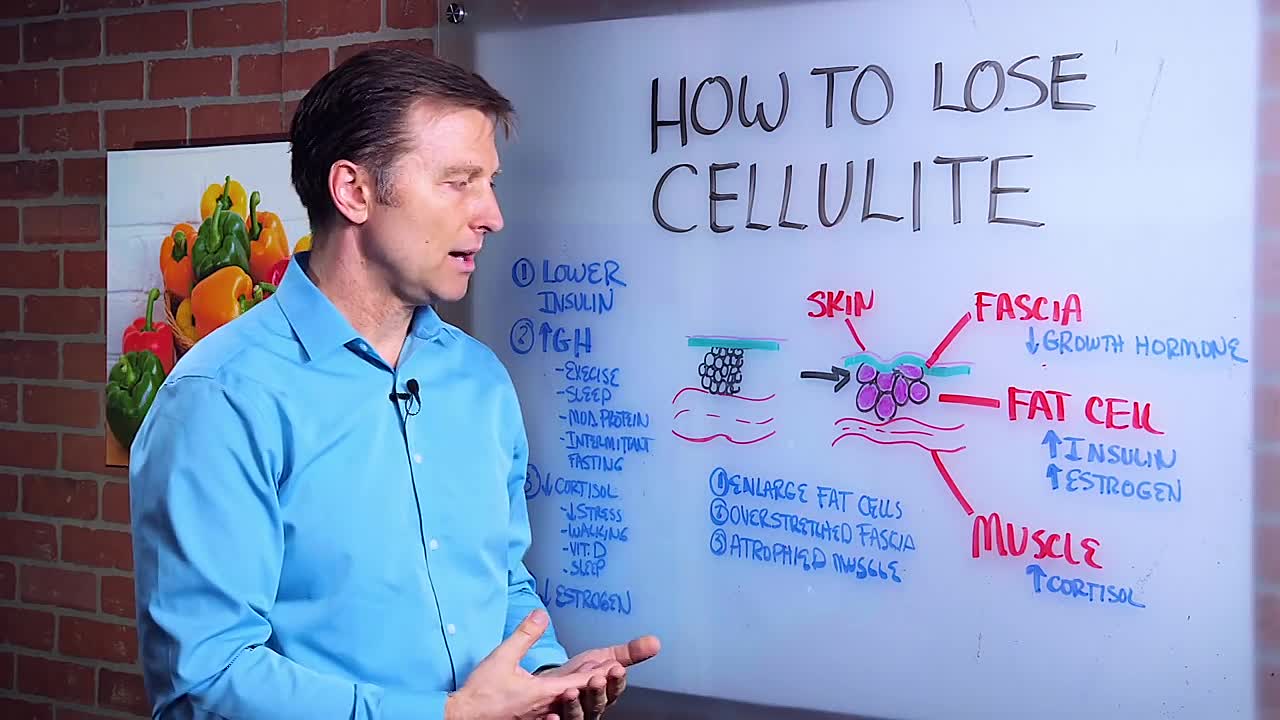 HOW TO LOSE
CELLULITE
① LOWER
INSULIN
② ↑GH
-EXCISE
-SLEEP
-MOD. PROTEIN
-INTERMITTANT
FASTING
③ ↓CORTISOL
-↓STRESS
-WALKING
-VIT. D
-SLEEP
↓ESTROGEN
SKIN
FASCIA
↓GROWTH HORMONE
FAT CELL
↑INSULIN
↑ESTROGEN
MUSCLE
↑CORTISOL
① ENLARGE FAT CELLS
② OVERSTRETCHED FASCIA
③ ATROPHIED MUSCLE